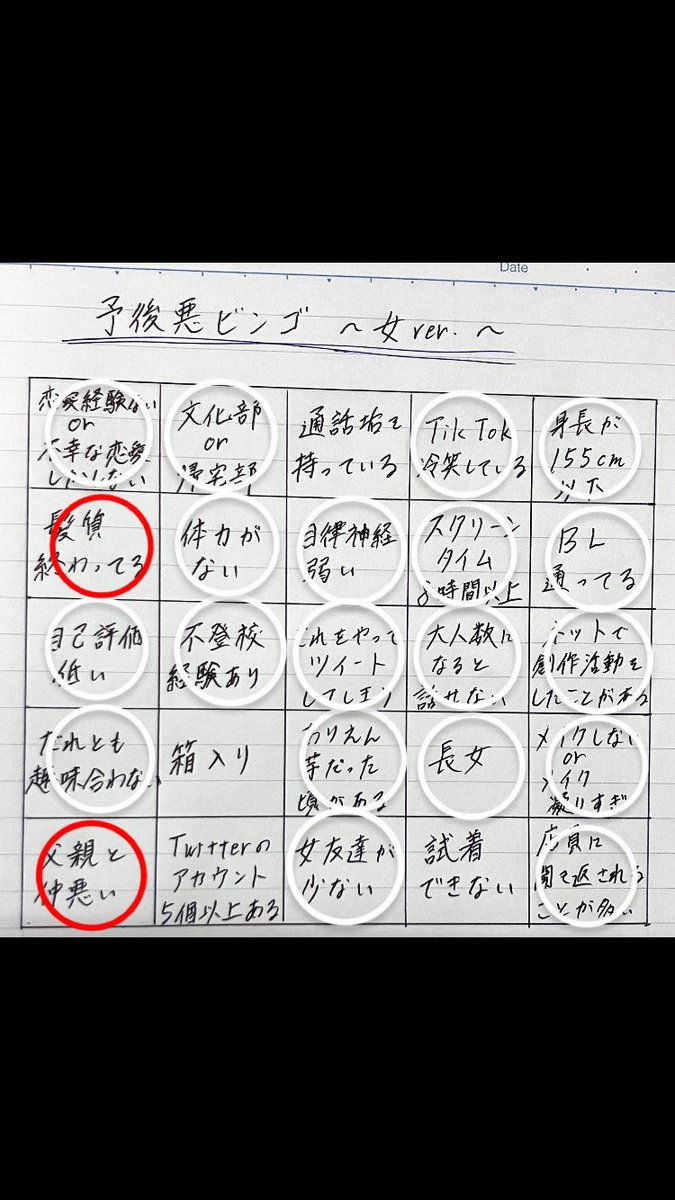 Date
予後悪ビンゴ ～女ver.～
恋愛経験ない
or
不幸な恋愛
しかしない
文化部
or
帰宅部
通話垢を
持っている
TikTok
冷笑している
身長が
155cm
以下
髪質
終わってる
体力が
ない
自律神経
弱い
スクリーン
タイム
8時間以上
BL
通ってる
自己評価
低い
不登校
経験あり
これをやって
ツイート
してしまう
大人数に
なると
話せない
ネットで
創作活動を
したことがある
だれとも
趣味合わない
箱入り
うりえん
芋だった
頃がある
長女
メイクしない
or
メイク
凝りすぎ
父親と
仲悪い
Twitterの
アカウント
5個以上ある
女友達が
少ない
試着
できない
店員に
聞き返される
ことが多い